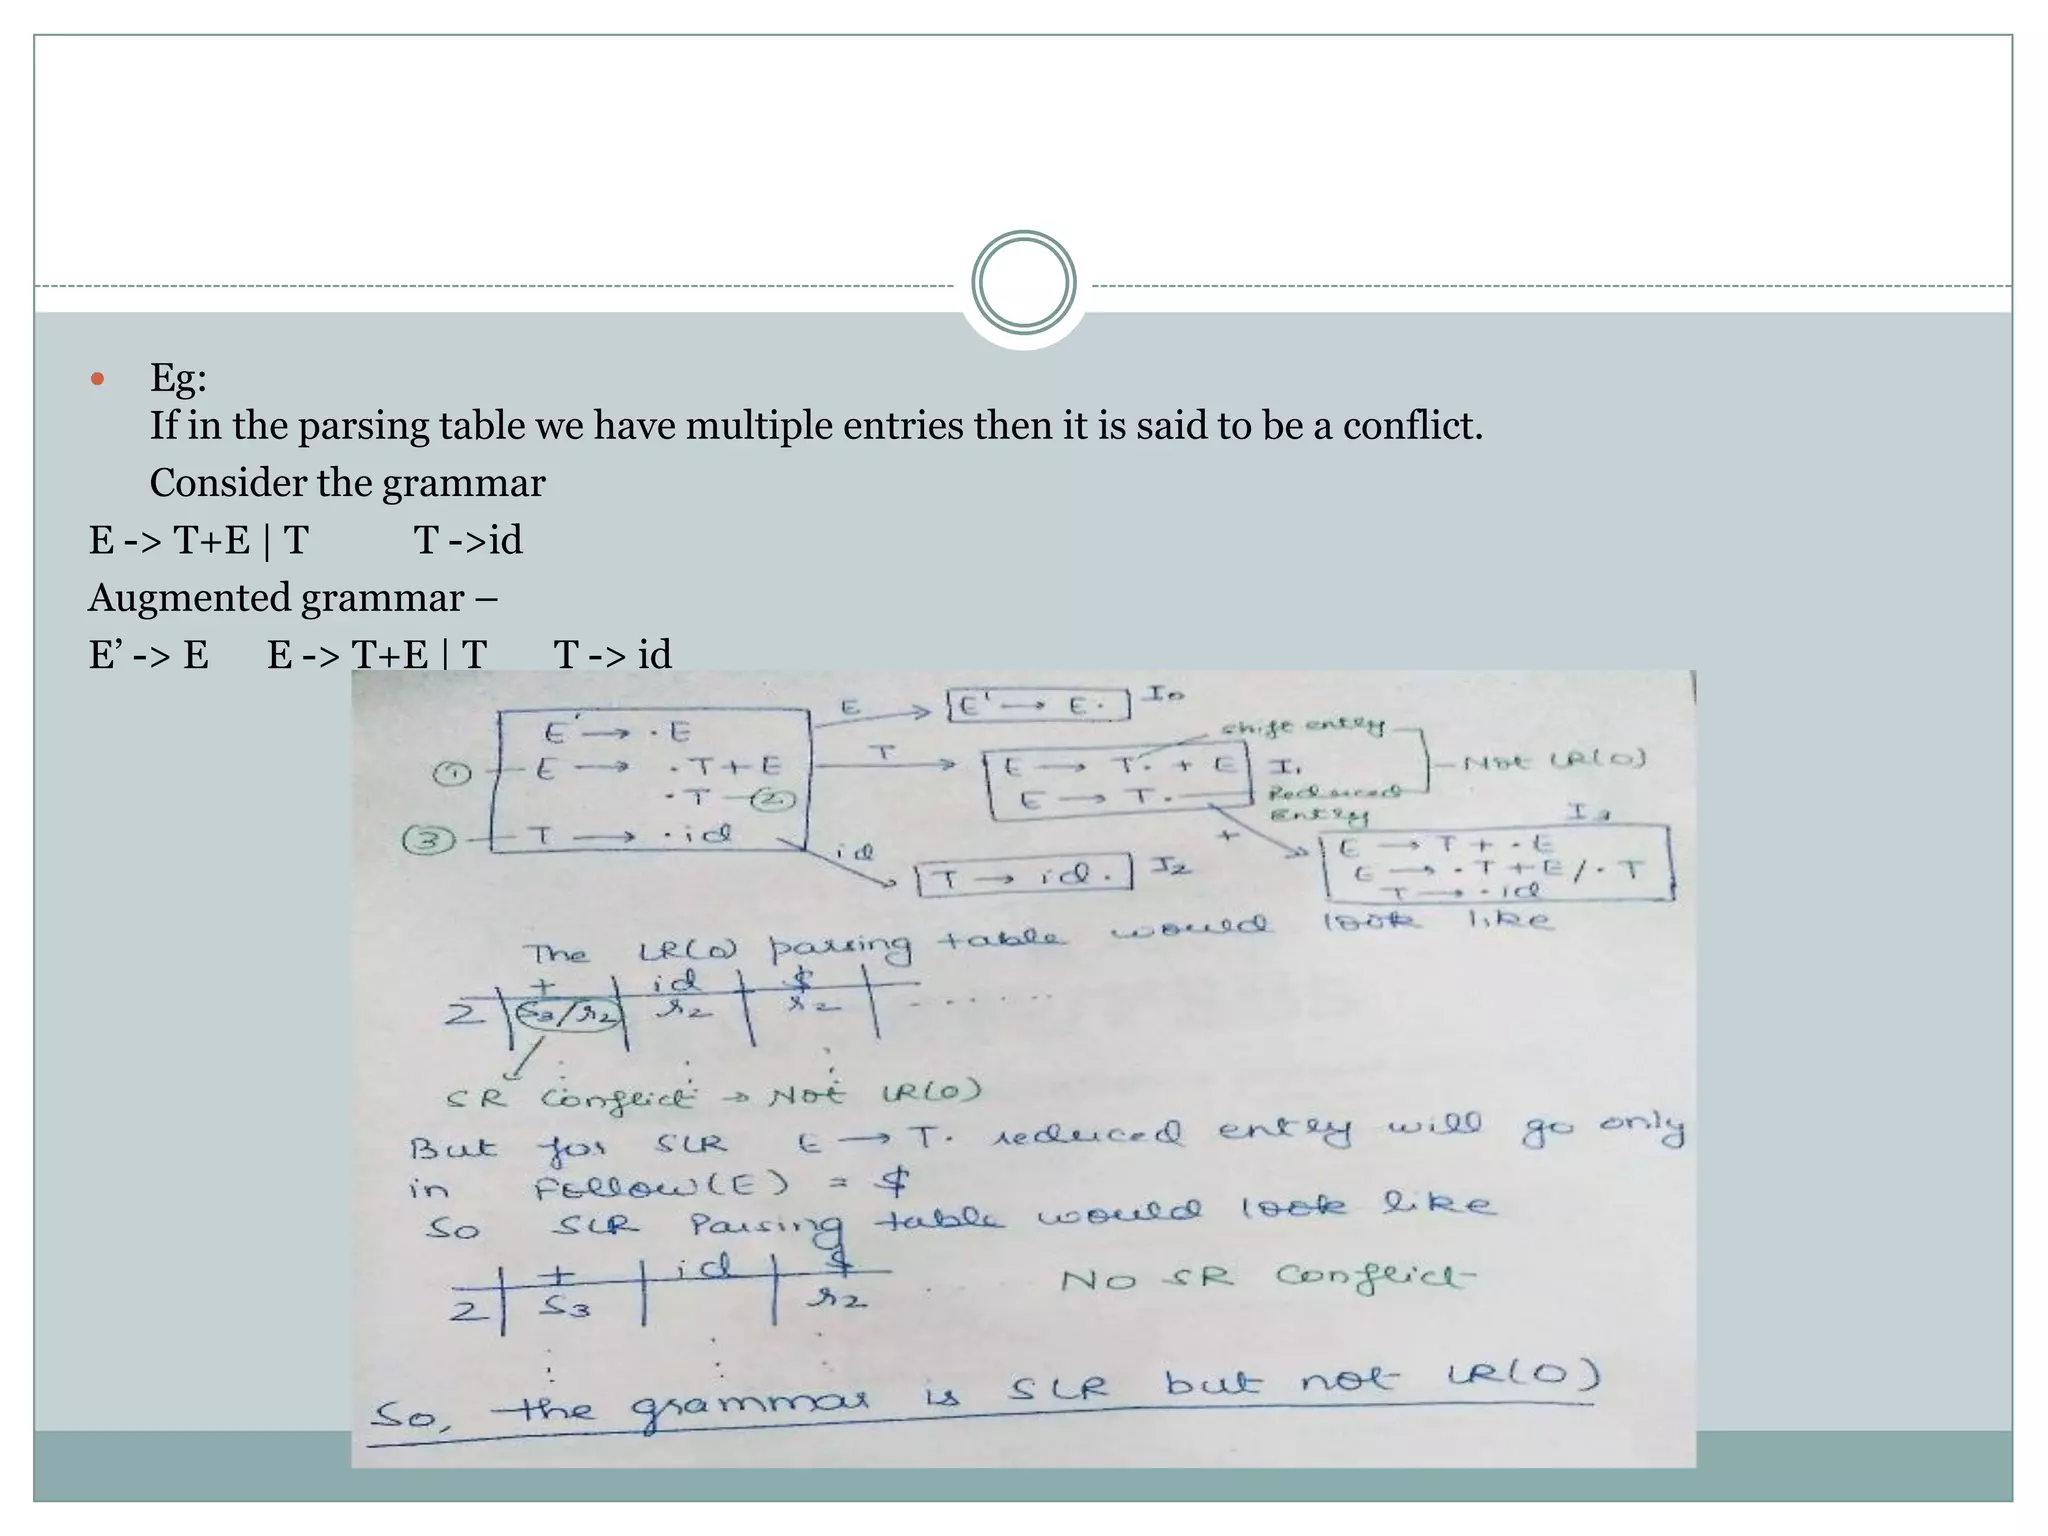 Eg:
If in the parsing table we have multiple entries then it is said to be a conflict.
Consider the grammar
E -> T+E | T T ->id
Augmented grammar –
E’ -> E E -> T+E | T T -> id
E' → .E
① E → .T+E
.T ②
③ T → .id
E
E' → E. I0
T
E → T.+E I1
E → T.
shift entry
Reduced
Entry
Not LR(0)
id
T → id. I2
+
I3
E → T+.E
E → .T+E/.T
T → .id
The LR(0) parsing table would look like
+ id $
2 S3/r2 r2 r2 ......
SR Conflict → Not LR(0)
But for SLR E → T. reduced entry will go only
in Follow(E) = $
So SLR Parsing table would look like
+ id $
2 S3 r2
NO SR Conflict
So, the grammar is SLR but not LR(0)